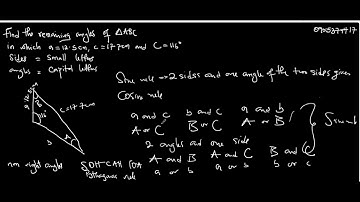 Find the remaining angles of △ABC
in which a=12.5cm, c=17.7cm and C=116°
Sides = Small letters
angles = Capital letters
Sine rule => 2 sides and one angle of the two sides given
Cosine rule
a and c b and c a and b
A or C B or C A or B
Sine rule
2 angles and one side
A and B A and C B and C
a or b a or c b or c
c=17.7cm
116°
b
A
non right angles SOH CAH TOA
Pythagoras rule